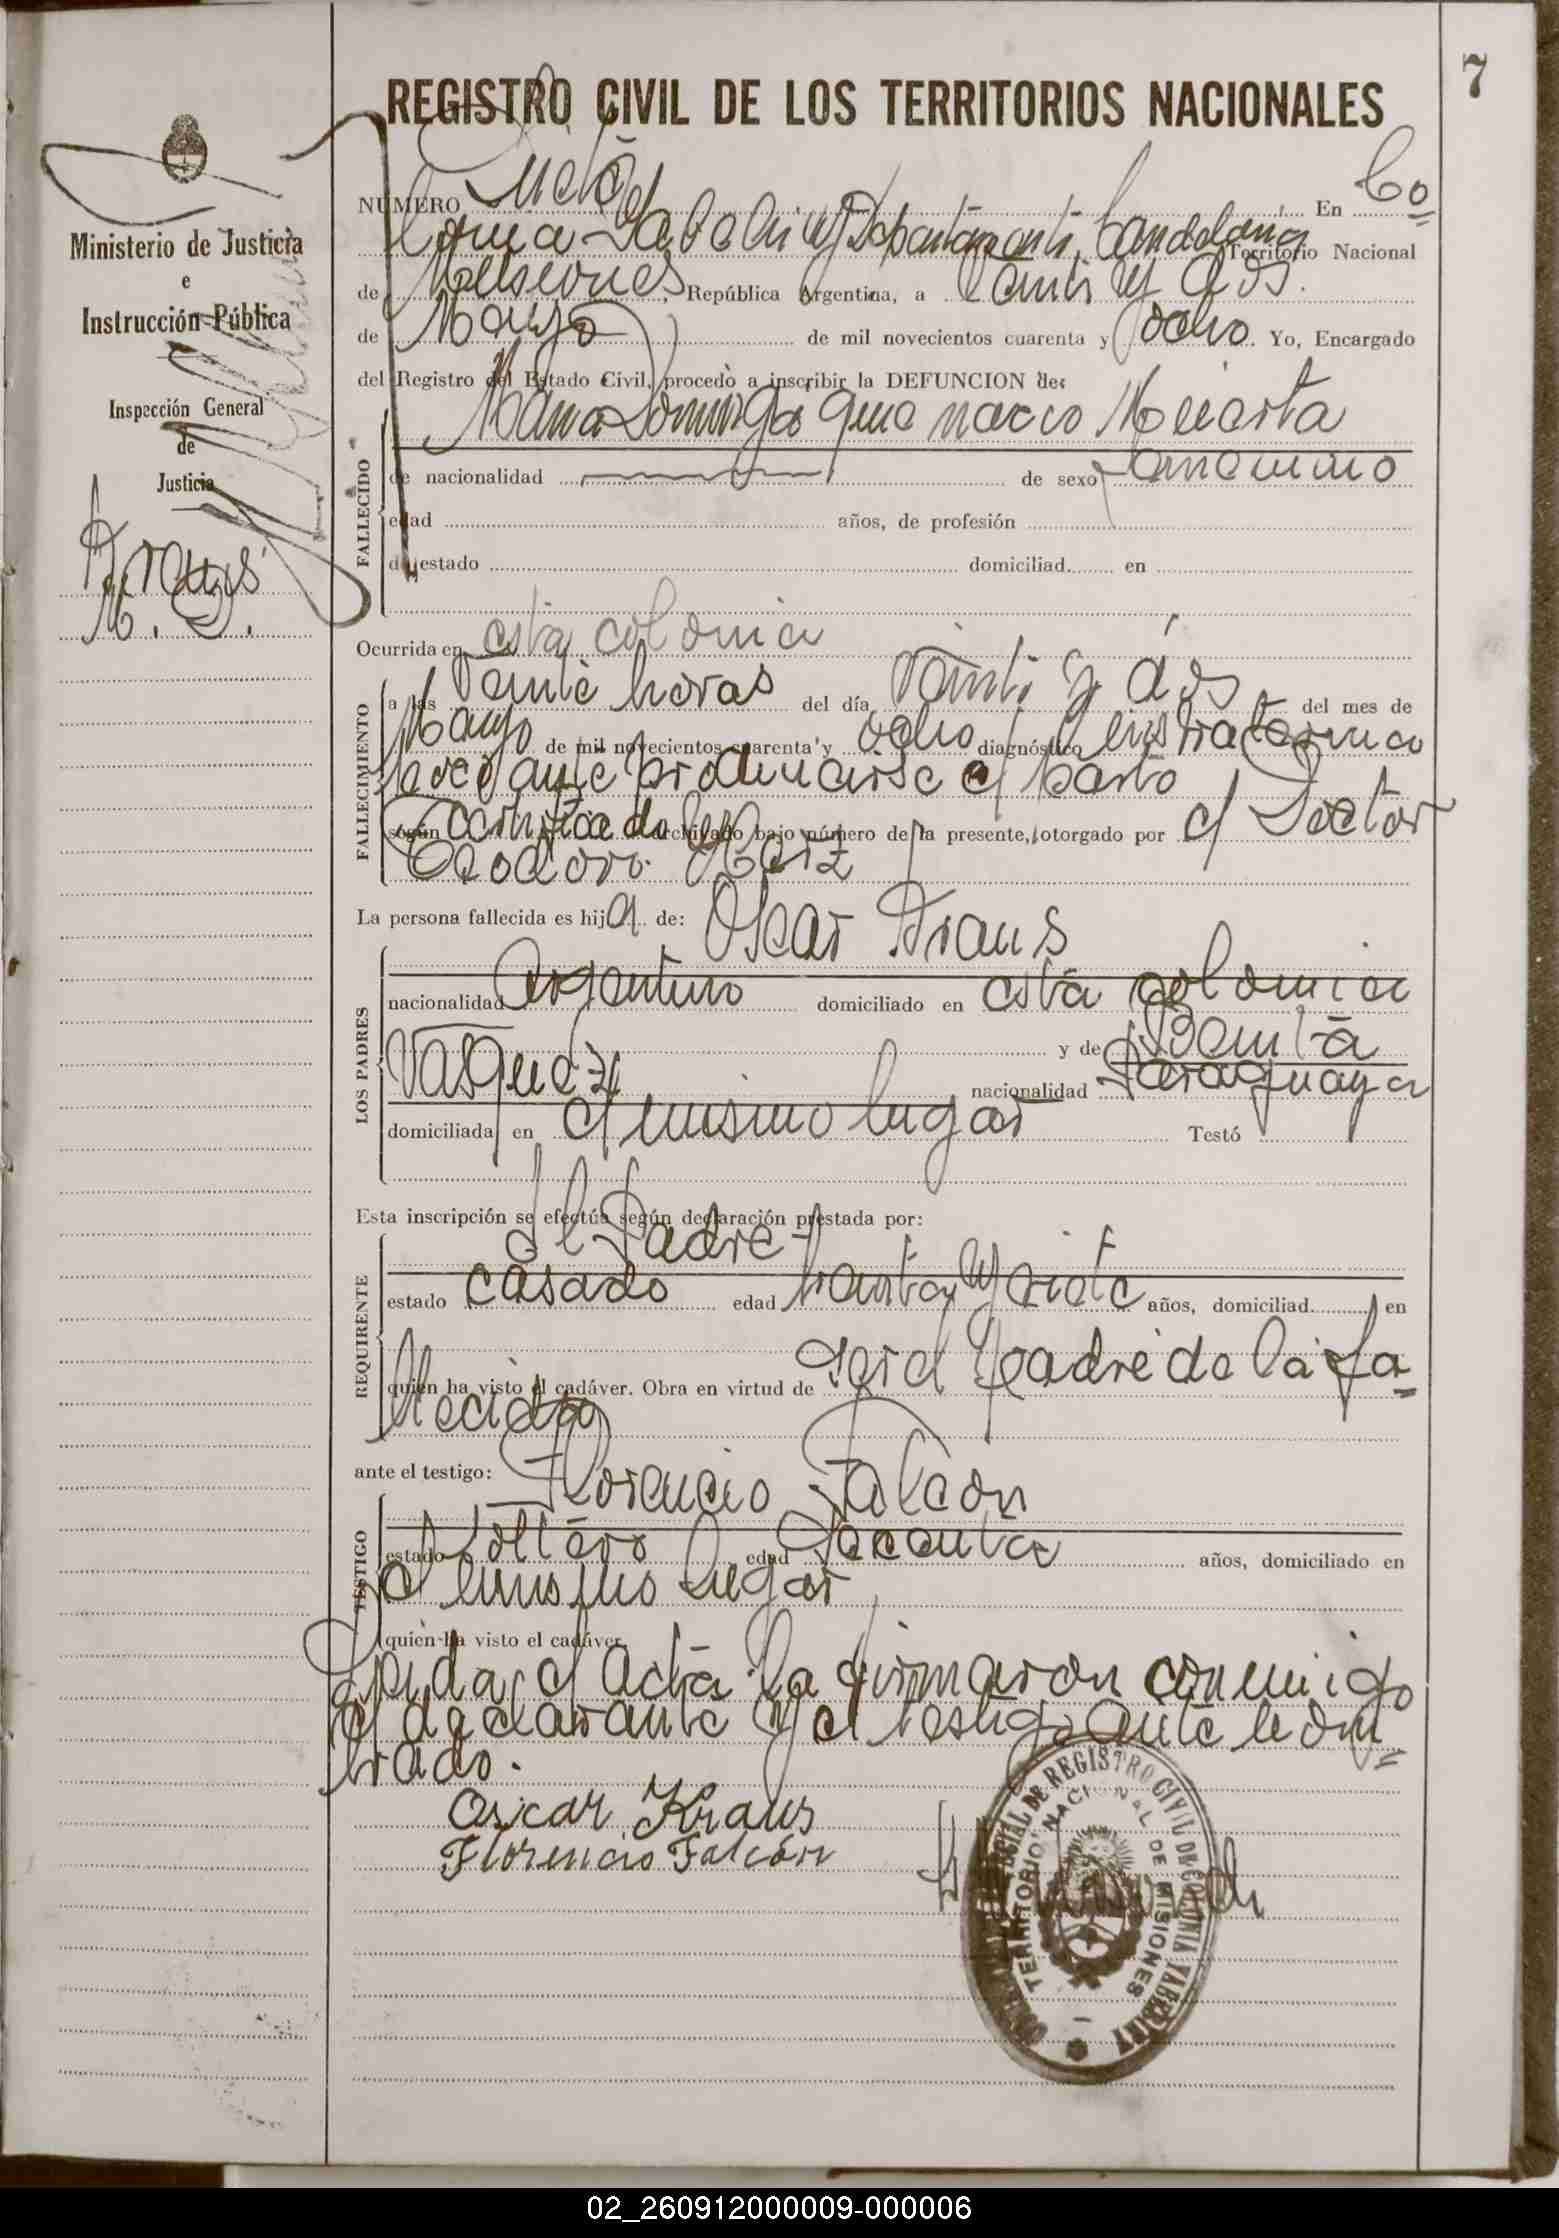 7
REGISTRO CIVIL DE LOS TERRITORIOS NACIONALES
Ministerio de Justicia
e
Instrucción Pública
Inspección General
de
Justicia
Kraus
M. D.
NÚMERO Siete En Co=
lonia Yabebiri Departamento Candelaria Territorio Nacional
de Misiones, República Argentina, a Veinti y dos
de Mayo de mil novecientos cuarenta y ocho. Yo, Encargado
del Registro del Estado Civil, procedo a inscribir la DEFUNCION de:
Maria Dominga que nacio Muerta
FALLECIDO
de nacionalidad de sexo femenino
edad años, de profesión
de estado domiciliad en
Ocurrida en esta colonia
FALLECIMIENTO
a las Veinte horas del día Veinti y dos del mes de
Mayo de mil novecientos cuarenta y ocho diagnóstico
producirse el parto
según Certificado archivado bajo número de la presente, otorgado por el Doctor
Teodoro
La persona fallecida es hija de: Oscar Kraus
LOS PADRES
nacionalidad Argentino domiciliado en esta colonia
y de Benita
Vasquez nacionalidad Paraguaya
domiciliada en el mismo lugar Testó
Esta inscripción se efectúa según declaración prestada por:
El Padre
REQUIRENTE
estado casado edad treinta y siete años, domiciliad en
quien ha visto el cadáver. Obra en virtud de ser el padre de la fa=
llecida
ante el testigo: Florencio Falcon
TESTIGO
estado Soltero edad Secenta años, domiciliado en
el mismo lugar
quien ha visto el cadáver.
Leida el acta la firmaron conmigo
el declarante y el testigo ante nom=
brado.
Oscar Kraus
Florencio Falcón
OFICIAL DE REGISTRO CIVIL DE COLONIA YABEBIRY
TERRITORIO NACIONAL DE MISIONES
02_260912000009-000006